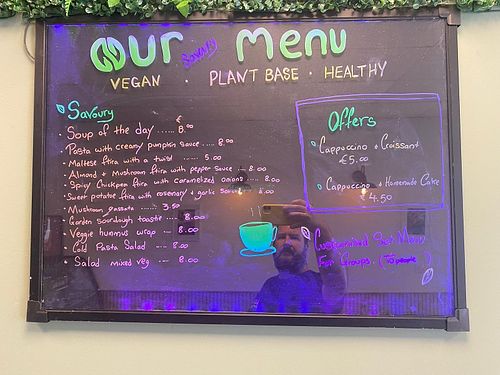 Our Savoury Menu
VEGAN · PLANT BASE · HEALTHY
Savoury
€
• Soup of the day ...... 8.00
• Pasta with creamy pumpkin sauce ..... 8.00
• Maltese ftira with a twist ..... 5.00
• Almond + Mushroom ftira with pepper sauce ... 8.00
• Spicy Chickpea ftira with caramelized onions .... 8.00
• Sweet potatoe ftira with rosemary + garlic 8.00
• Mushroom 3.50
• Garden sourdough toastie ..... 8.00
• Veggie hummus wrap ..... 8.00
• Cold Pasta Salad ..... 8.00
• Salad mixed veg ..... 8.00
Offers
Cappuccino + Croissant
€5.00
Cappuccino + Homemade Cake
€4.50
Customised Set Menu
For Groups. (10 people)